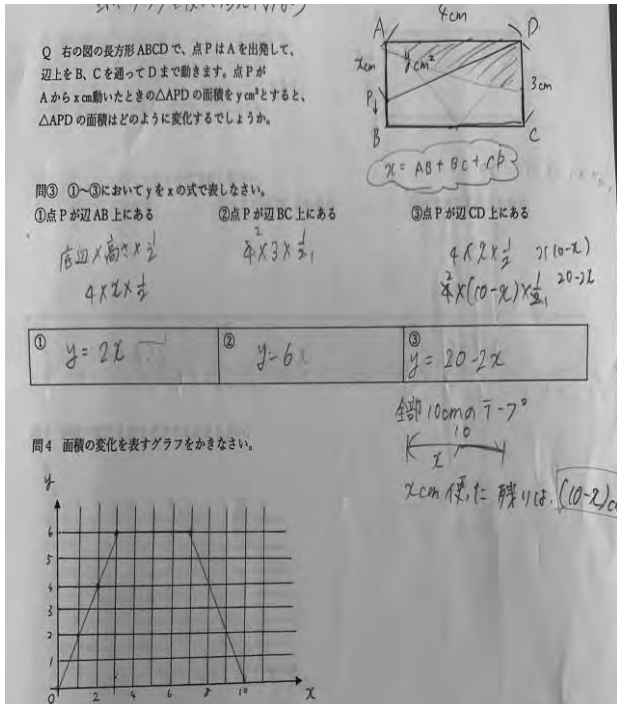 4cm
A
D
Q 右の図の長方形 ABCD で、点 P は A を出発して、
辺上を B、C を通って D まで動きます。点 P が
A から x cm 動いたときの△APD の面積を y cm²とすると、
△APD の面積はどのように変化するでしょうか。
xcm
ycm²
P
3cm
B
C
x = AB + BC + CP
問③ ①~③において y を x の式で表しなさい。
①点 P が辺 AB 上にある
②点 P が辺 BC 上にある
③点 P が辺 CD 上にある
底辺×高さ×1/2
4×x×1/2
4×3×1/2
2
1
4×x×1/2
2(10-x)
4×(10-x)×1/2
2
1
20-2x
① y = 2x
② y = 6
③ y = 20-2x
全部10cmのテープ
10
x
xcm 使った 残りは、(10-x)c
問4 面積の変化を表すグラフをかきなさい。
y
6
5
4
3
2
1
0
2
4
6
8
10
x